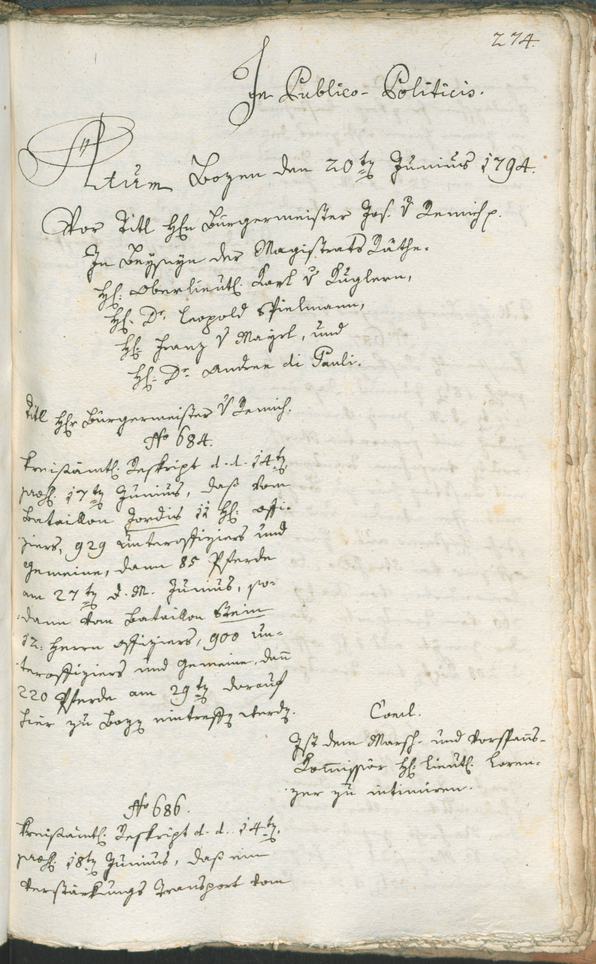 274.
In Publico-Politicis.
Actum Bozen den 20ten Junius 1794.
Vor Titl Hhn Bürgermeister Jos. v Remich p.
In Beyseyn der Magistrats Räthe.
Hh: Oberlieutl. Karl v Kuglern,
Hh. Dr. Leopold Spielmann,
Hh. Franz v Mayrl, und
Hh. Dr Andree di Pauli.
Titl Hhr Bürgermeister v Remich.
No 684.
Kreisämtl: Reskript d. d. 14ten
17ten Junius, daß vom
Bataillon Jordis 12 Hh: Offi-
ziers, 929 Unteroffiziers und
Gemeine, dann 85 Pferde
am 27ten d. M. Junius, so-
dann von Bataillon Stein
12: Herrn Offiziers, 900 Un-
teroffiziers und Gemeine, dann
220 Pferde am 29ten darauf
hier zu Bozen eintreffen werden.
Concl.
Ist dem Marsch- und Vorspanns-
Kommissär Hh: Lieutl. Loren-
zer zu intimiren.
No 686.
Kreisämtl: Reskript d. d. 14ten,
18ten Junius, daß ein
Verstärkungs Transport vom